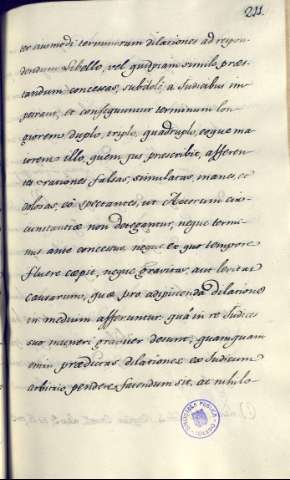 211.
ter eiusmodi terminorum dilationes ad respon-
dendum libello, vel quidpiam simile præs-
tandum concessas, subdolè a Iudicibus im-
petrant, et consequuntur terminum lon-
giorem duplo, triplo, quadruplo, eoque ma-
iorem illo, quem jus prescribit, afferen-
tes rationes falsas, simulatas, inanes, et
dolosas, eo sperantes, ut Actorum cir-
cunstantiæ non detegantur, neque termi-
nus ante concessus, neque ex quo tempore
fluere cœpit, neque gravitas, aut levitas
causarum, quæ pro adipiscenda dilatione
in medium afferuntur. quâ in re Iudices
suo muneri graviter desunt, quamquam
enim prædictas dilationes ex Iudicum
arbitrio pendere fatendum sit, at nihilo-
BIBLIOTECA PUBLICA